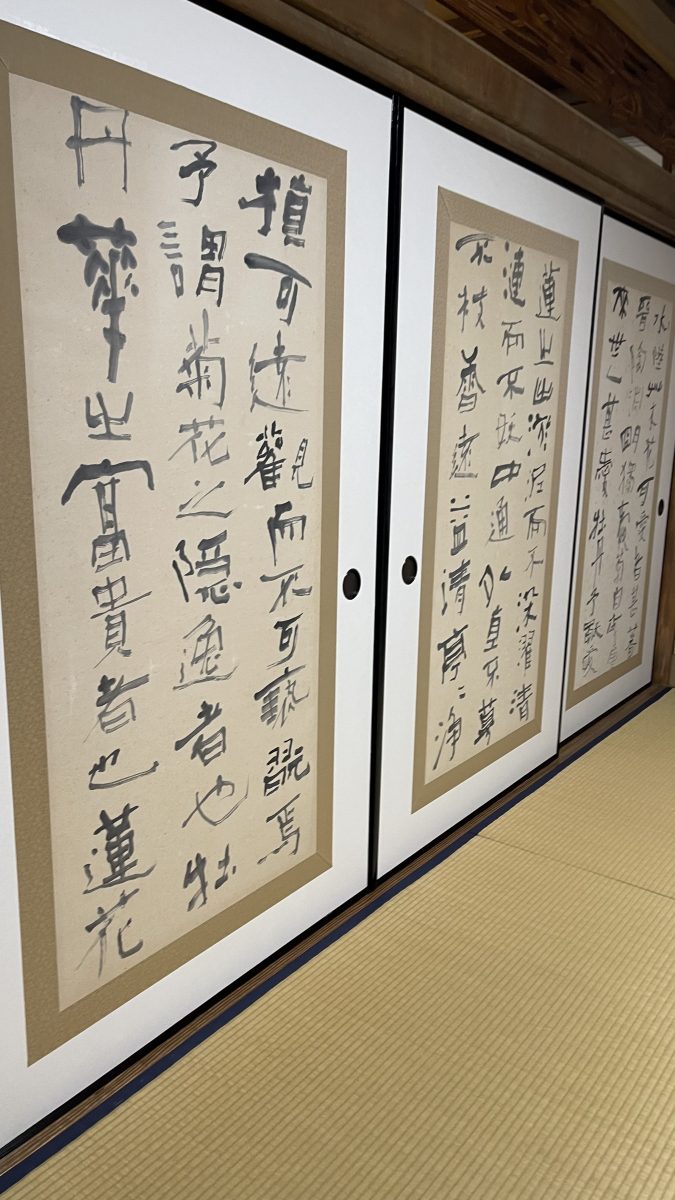 水陸艸木花可愛者甚蕃
晉陶淵明獨愛菊自李唐
來世人甚愛牡丹予獨愛
蓮之出淤泥而不染濯清
漣而不妖中通外直不蔓
不枝香遠益清亭〻淨
植可遠觀而不可褻翫焉
予謂菊花之隠逸者也牡
丹華之富貴者也蓮花